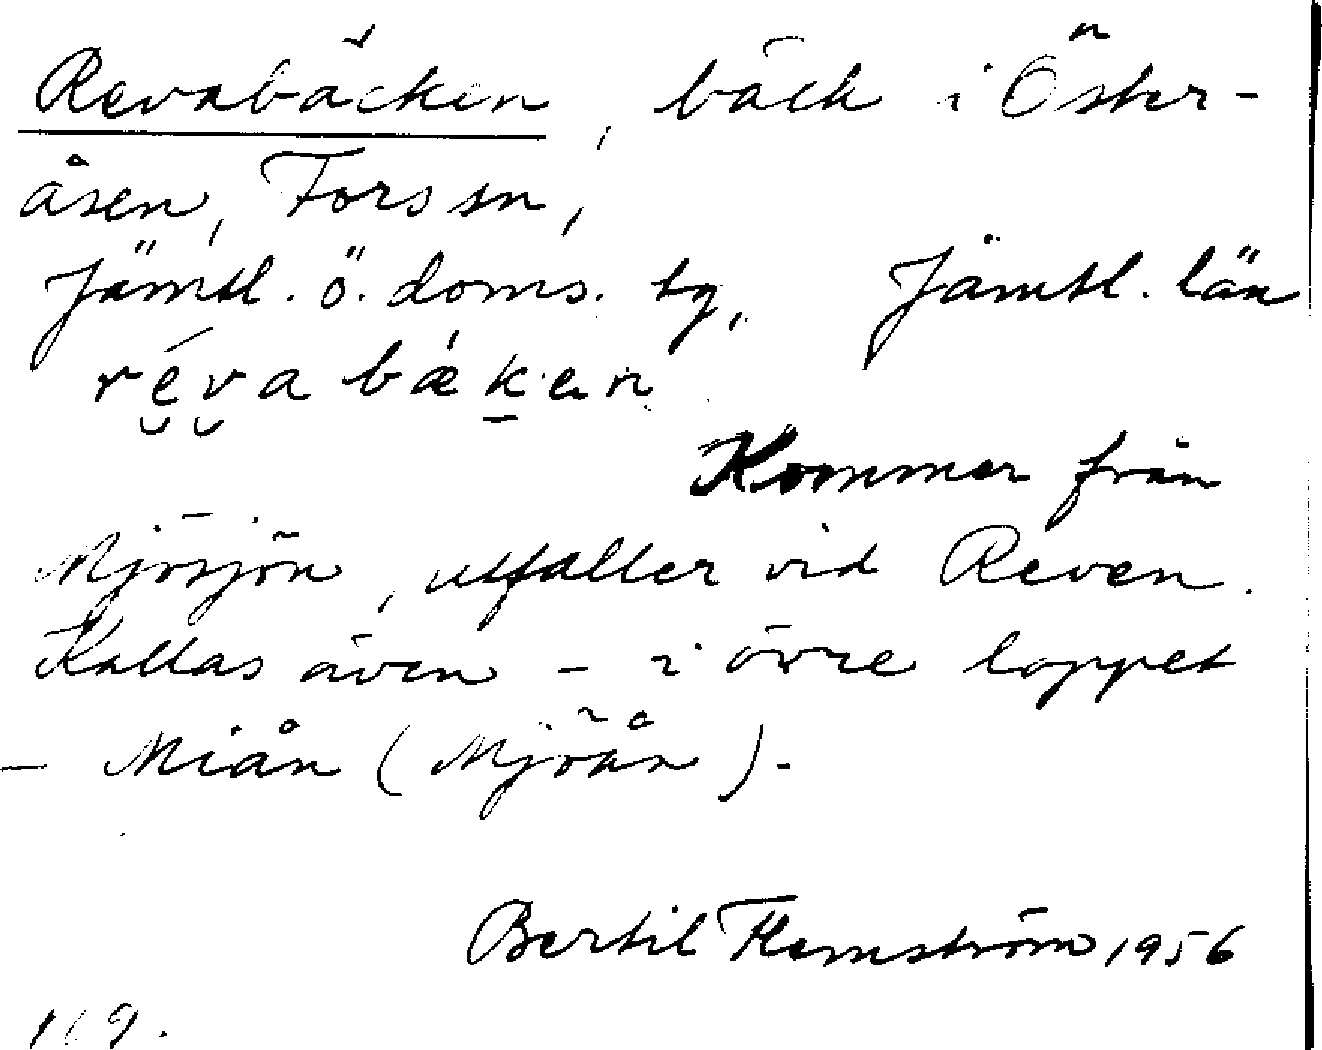 Revabäcken, bäck i Öster-
åsen, Fors sn,
Jämtl. ö. doms. tg, Jämtl. län
révabækan
Kommer från
Mjösjön, utfaller vid Reven.
Kallas även - i övre loppet
- Miån (Mjöån).-
Bertil Flemström 1956
169.